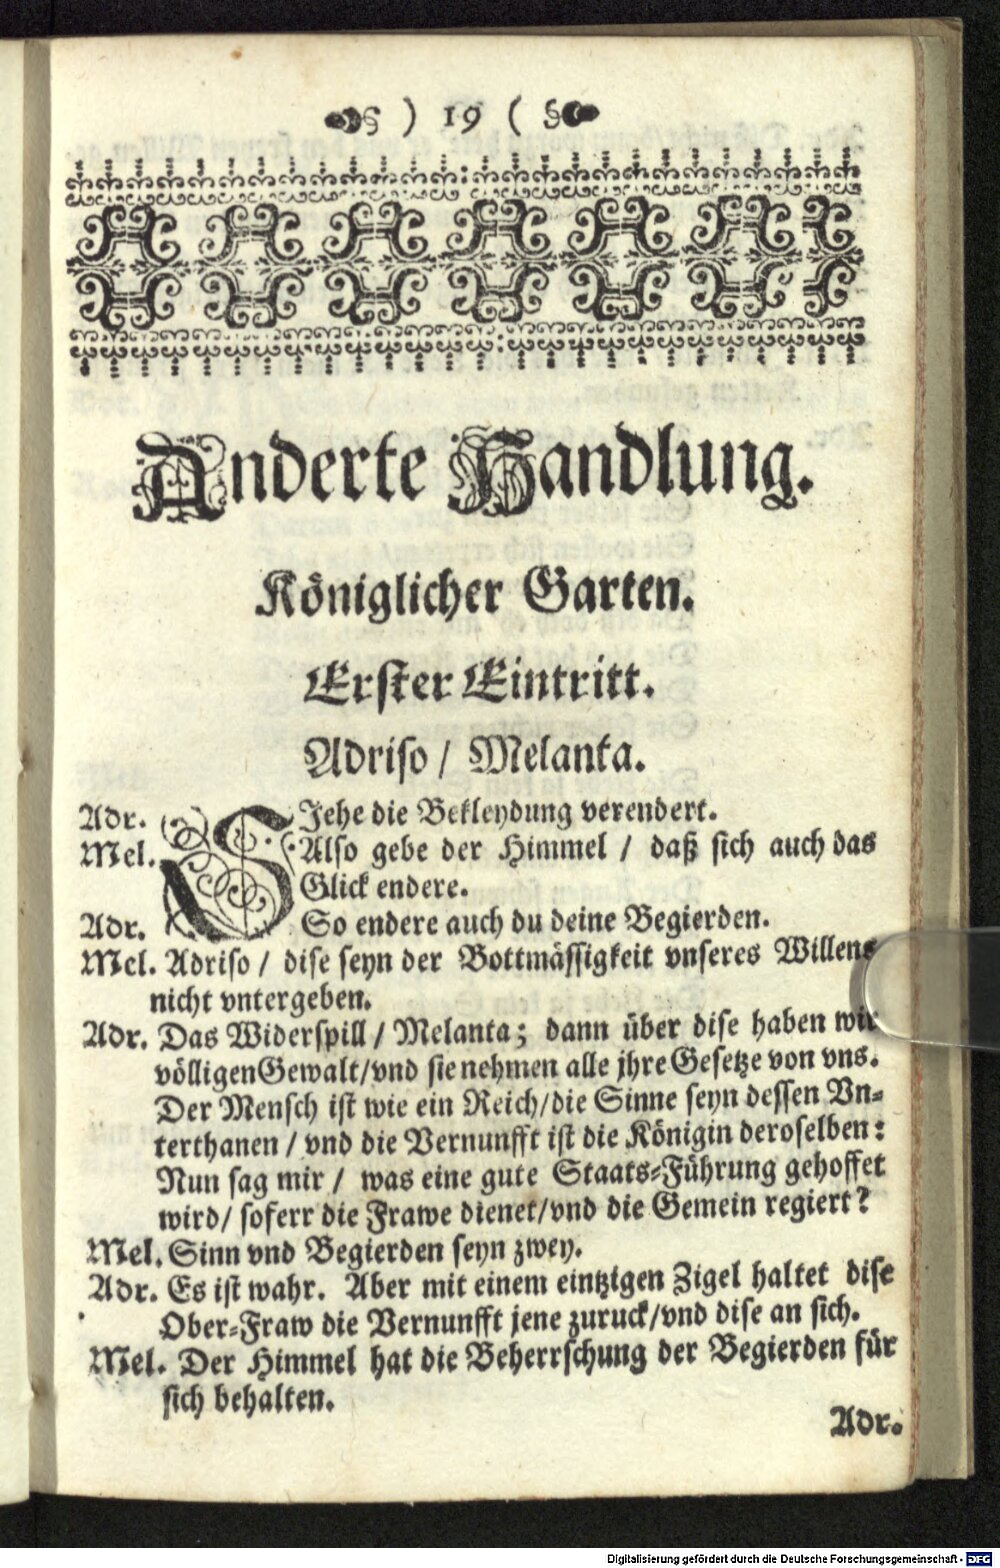 ) 19 (
Anderte Handlung.
Königlicher Garten.
Erster Eintritt.
Adriso / Melanta.
Adr. SJehe die Bekleydung verendert.
Mel. Also gebe der Himmel / daß sich auch das
Glick endere.
Adr. So endere auch du deine Begierden.
Mel. Adriso / dise seyn der Bottmässigkeit vnseres Willens
nicht vntergeben.
Adr. Das Widerspill / Melanta; dann über dise haben wir
völligen Gewalt/vnd sie nehmen alle jhre Gesetze von vns.
Der Mensch ist wie ein Reich/die Sinne seyn dessen Vn-
terthanen / vnd die Vernunfft ist die Königin deroselben:
Nun sag mir / was eine gute Staats-Führung gehoffet
wird/ soferr die Frawe dienet/vnd die Gemein regiert?
Mel. Sinn vnd Begierden seyn zwey.
Adr. Es ist wahr. Aber mit einem eintzigen Zigel haltet dise
Ober-Fraw die Vernunfft jene zuruck/vnd dise an sich.
Mel. Der Himmel hat die Beherrschung der Begierden für
sich behalten.
Adr.
Digitalisierung gefördert durch die Deutsche Forschungsgemeinschaft - DFG